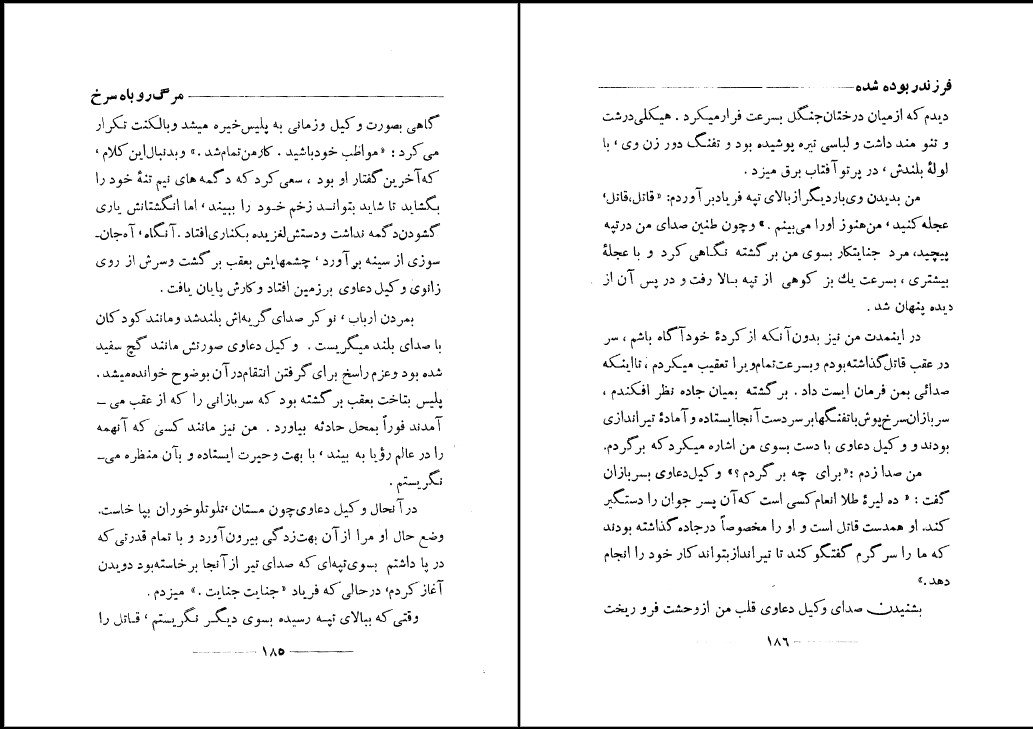 مرگ روباه سرخ
گاهی بصورت وکیل وزمانی به پلیس خیره میشد وبالکنت تکرار
می کرد : «مواظب خودباشید . کارمن تمام شد .» وبدنبال این کلام ،
که آخرین گفتار او بود ، سعی کرد که دگمه های نیم تنهٔ خود را
بگشاید تا شاید بتواند زخم خود را ببیند ، اما انگشتانش یاری
گشودن دگمه نداشت ودستش لغزیده بکناری افتاد . آنگاه ، آه جان‌ـ
سوزی از سینه بر آورد ، چشمهایش بعقب برگشت وسرش از روی
زانوی وکیل دعاوی برزمین افتاد وکارش پایان یافت .
بمردن ارباب ، نوکر صدای گریه‌اش بلندشد ومانند کودکان
با صدای بلند میگریست . وکیل دعاوی صورتش مانند گچ سفید
شده بود وعزم راسخ برای گرفتن انتقام در آن بوضوح خوانده میشد .
پلیس بتاخت بعقب برگشته بود که سربازانی را که از عقب می ـ
آمدند فوراً بمحل حادثه بیاورد . من نیز مانند کسی که آنهمه
را در عالم رؤیا به بیند ، با بهت وحیرت ایستاده و بآن منظره می‌ـ
نگریستم .
در آنحال وکیل دعاوی چون مستان ، تلوتلوخوران بپا خاست.
وضع حال او مرا از آن بهت زدگی بیرون آورد و با تمام قدرتی که
در پا داشتم بسوی تپه‌ای که صدای تیر از آنجا برخاسته بود دویدن
آغاز کردم، درحالی که فریاد «جنایت جنایت .» میزدم .
وقتی که ببالای تپه رسیده بسوی دیگر نگریستم ، قاتل را
۱۸۵
فرزند ربوده شده
دیدم که ازمیان درختان جنگل بسرعت فرار میکرد . هیکلی درشت
و تنو مند داشت و لباسی تیره پوشیده بود و تفنگ دور زن وی ، با
لولهٔ بلندش ، در پرتو آفتاب برق میزد .
من بدیدن وی باردیگر ازبالای تپه فریاد برآوردم: «قاتل، قاتل،
عجله کنید ، من هنوز اورا می بینم .» وچون طنین صدای من در تپه
پیچید، مرد جنایتکار بسوی من برگشته نگاهی کرد و با عجلهٔ
بیشتری ، بسرعت یك بز کوهی از تپه بالا رفت و در پس آن از
دیده پنهان شد .
در اینمدت من نیز بدون آنکه از کردهٔ خود آگاه باشم ، سر
در عقب قاتل گذاشته بودم وبسرعت تمام ویرا تعقیب میکردم ، تااینکه
صدائی بمن فرمان ایست داد . برگشته بمیان جاده نظر افکندم ،
سربازان سرخ پوش با تفنگها بر سر دست آنجا ایستاده و آمادهٔ تیر اندازی
بودند و وکیل دعاوی با دست بسوی من اشاره میکرد که برگردم.
من صدا زدم : «برای چه برگردم ؟» وکیل دعاوی بسربازان
گفت : « ده لیرهٔ طلا انعام کسی است که آن پسر جوان را دستگیر
کند. او همدست قاتل است و او را مخصوصاً در جاده گذاشته بودند
که ما را سرگرم گفتگو کند تا تیر انداز بتواند کار خود را انجام
دهد.»
بشنیدن صدای وکیل دعاوی قلب من از وحشت فرو ریخت
۱۸۶